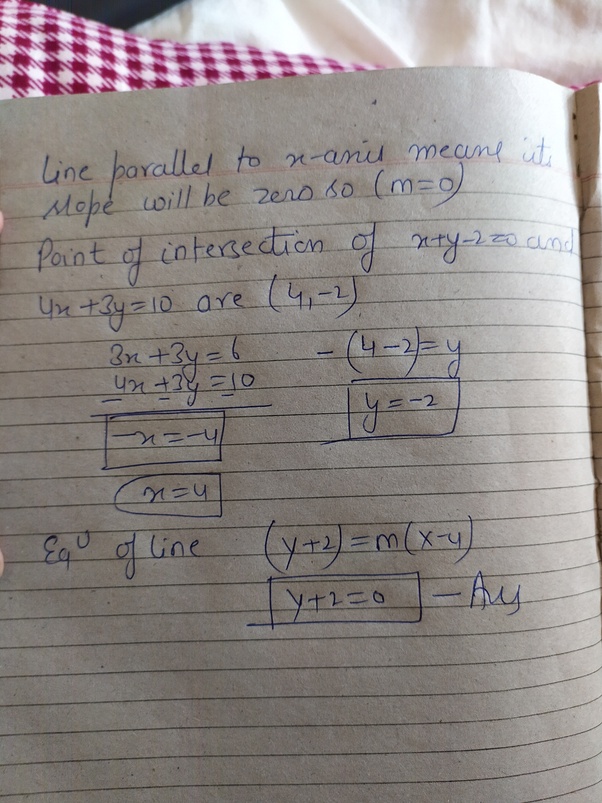 Line parallel to x-axis means its
slope will be zero so (m=0)
Point of intersection of x+y-2=0 and
4x+3y=10 are (4,-2)
3x+3y=6
4x+3y=10
- - -
-x=-4
x=4
-(4-2)=y
y=-2
Eqⁿ of line (y+2)=m(x-4)
y+2=0 - Ans